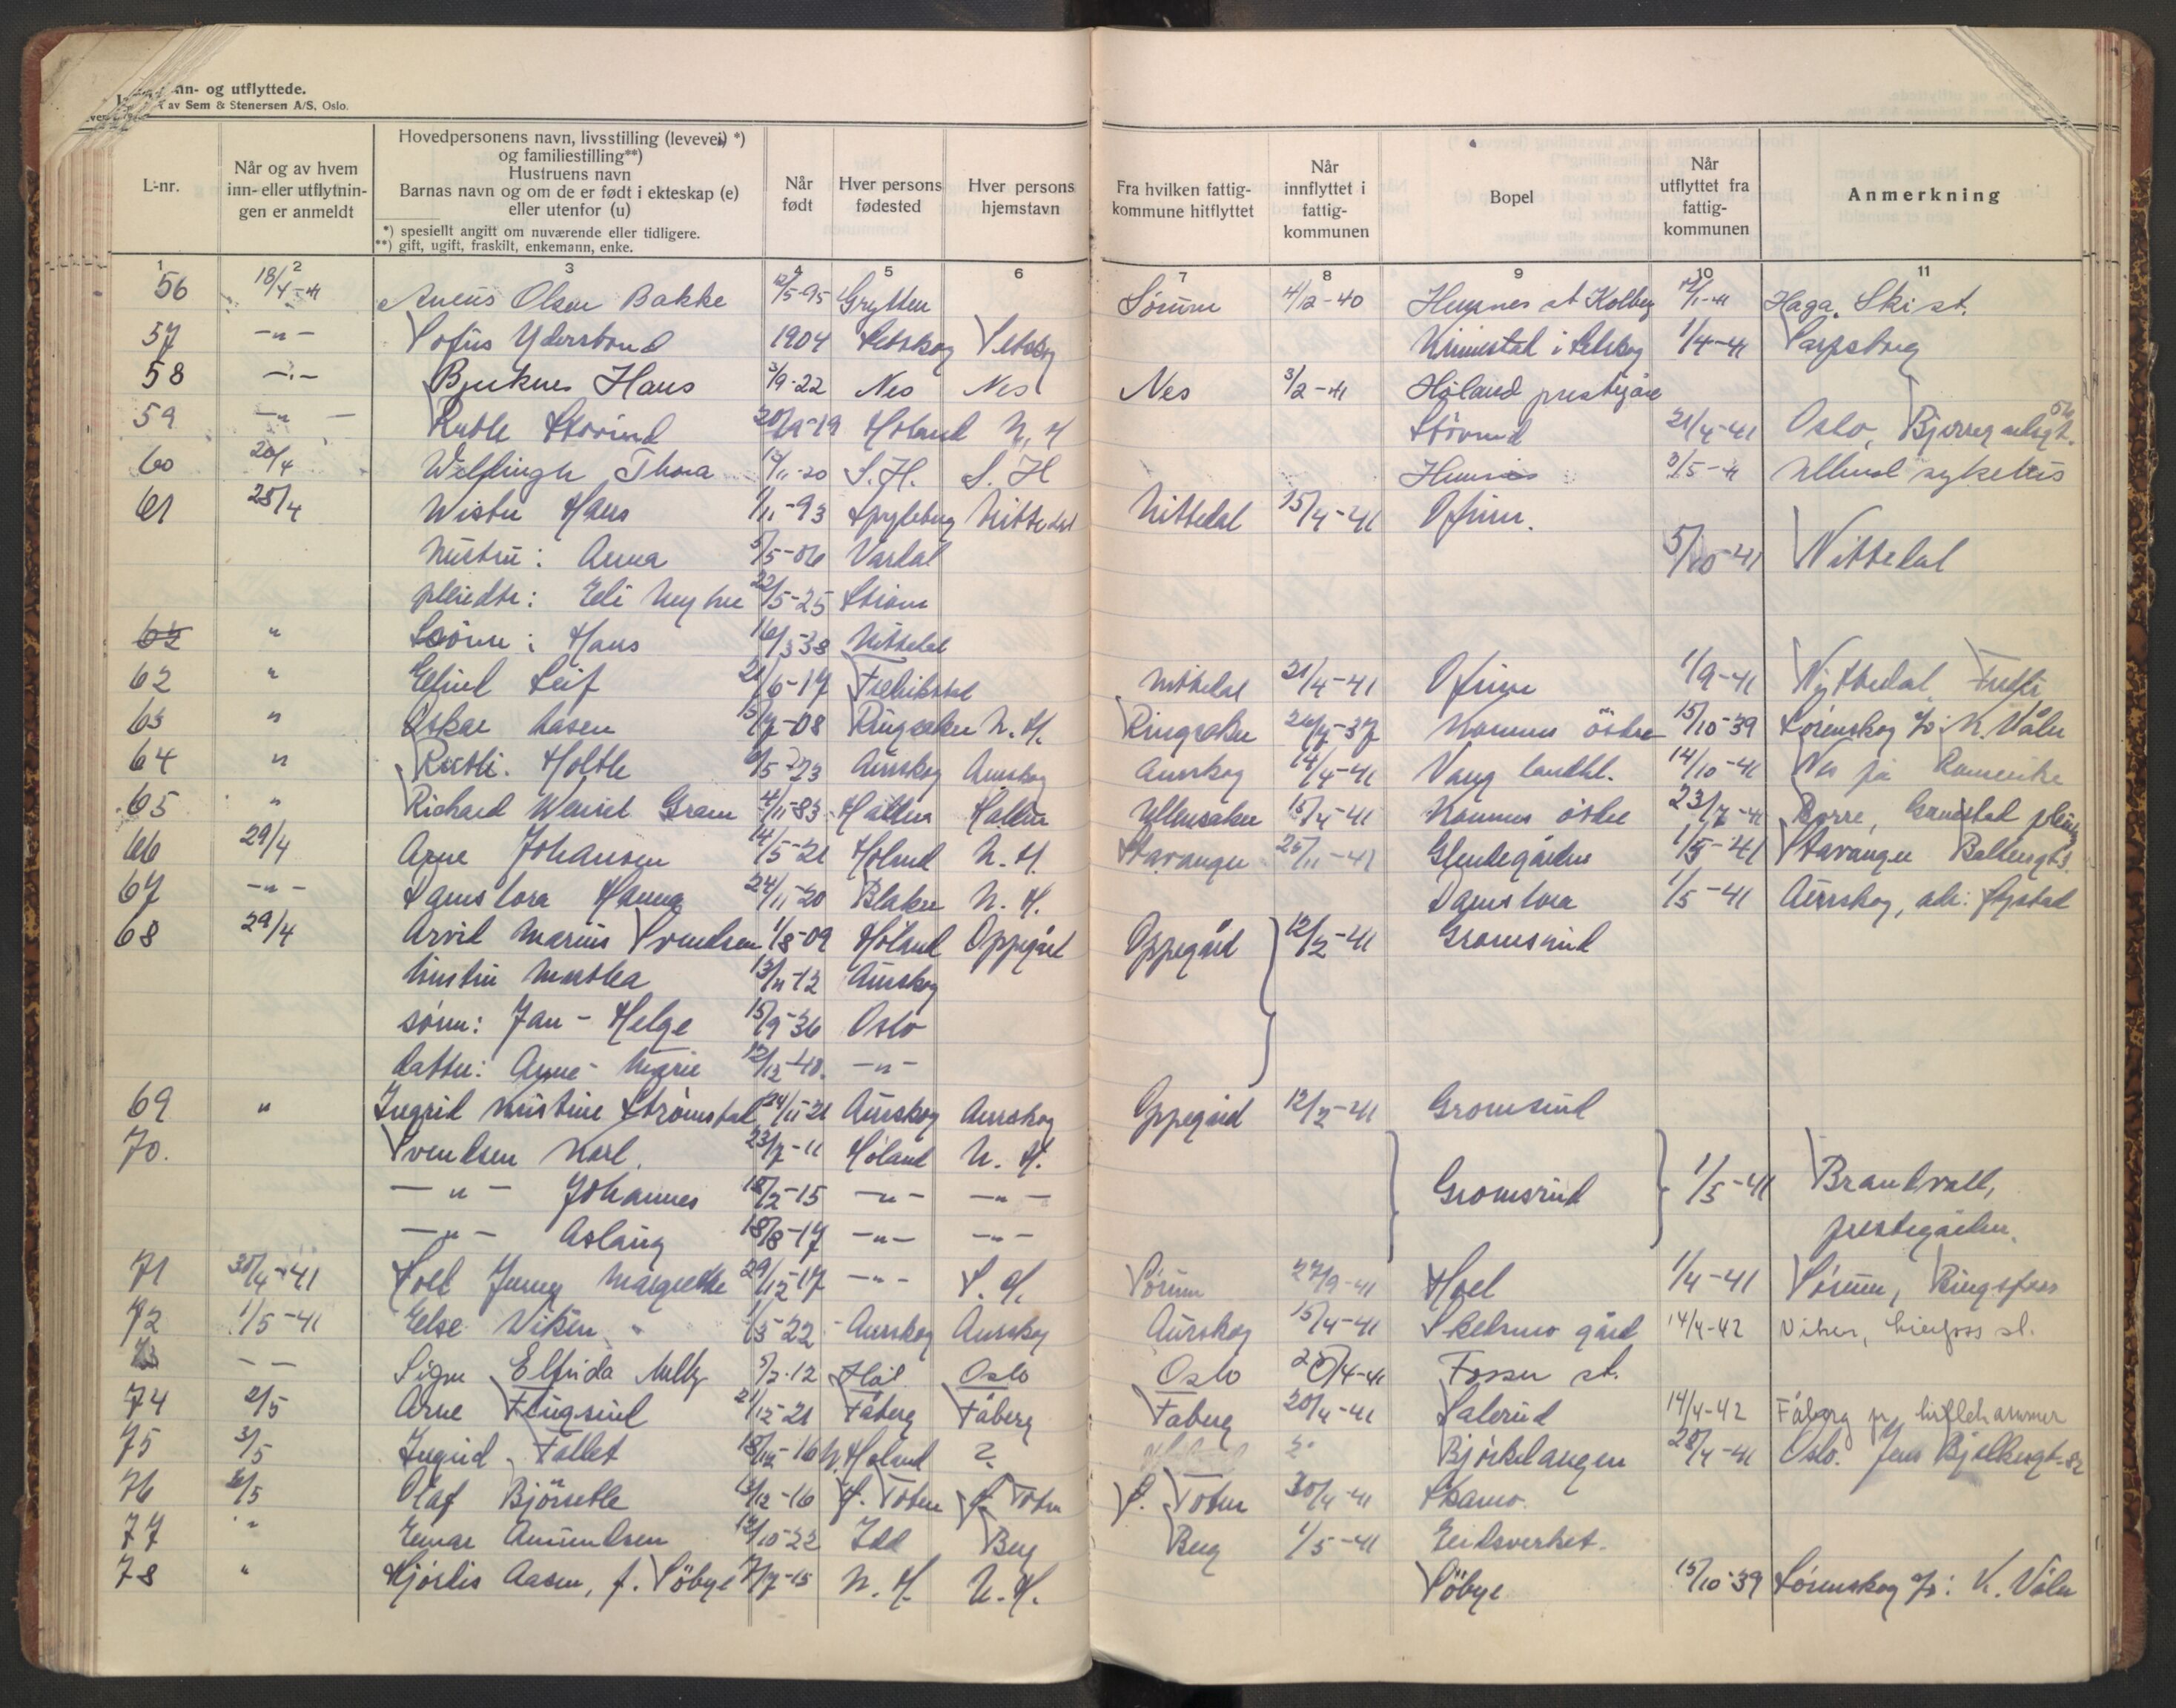 nn- og utflyttede.
av Sem & Stenersen A/S, Oslo.
L-nr. | Når og av hvem inn- eller utflytnin-gen er anmeldt | Hovedpersonens navn, livsstilling (levevei) *) og familiestilling**) Hustruens navn Barnas navn og om de er født i ekteskap (e) eller utenfor (u) *) spesielt angitt om nuværende eller tidligere. **) gift, ugift, fraskilt, enkemann, enke. | Når født | Hver persons fødested | Hver persons hjemstavn | Fra hvilken fattig-kommune hitflyttet | Når innflyttet i fattig-kommunen | Bopel | Når utflyttet fra fattig-kommunen | Anmerkning
1 2 3 4 5 6 7 8 9 10 11
56 18/4-41 Olsen Bakke 12/5-95 Grytten Sørum 4/12-40 Hemnes st Kolbog Haga, Ski st.
57 -"- Sofus Ydersbond 1904 Setskog Setskog i Setskog 1/4-41 Sarpsborg
58 -"- Bjerknes Hans 3/9-22 Nes Nes Nes 3/2-41 Høland prestegård
59 -"- Ruth Störind 20/9-19 Høland N. H. Störind 21/4-41 Oslo,
60 20/4 Welfingh Thora S. H. S. H Hemnes 3/5-41 Ullevål sykehus
61 25/4 Wister Hans 1/11-93 Nittedal Nittedal 15/4-41
hustru: Anna 5/5-06 Vardal 5/10-41 Nittedal
pleiedtr: Eli 22/5-25 Strøm
62 " Sønn: Hans 16/3-38 Nittedal
62 " Leif 21/6-17 Fredrikstad Nittedal 21/4-41 1/9-41 Nittedal
63 " Oskar Aasen Ringsaker N. H. Ringsaker Komnes östre 15/10-39 Lørenskog N. Våler
64 " Holth Aurskog Aurskog Aurskog 14/4-41 Vang landhl. 14/10-41 Nes på Romerike
65 " Richard Gram 4/11-83 Ullensaker 15/4-41 Komnes östre 23/7-41 Borre,
66 29/4 Arne Johansen 14/5-21 Høland N. H. Stavanger 25/11-41 Glendegården 1/5-41 Stavanger
67 -"- Damstora Hanna 24/11-20 Blaker N. H. Damstora 1/5-41 Aurskog, adr:
68 29/4 Arvid Marius Svendsen 1/8-09 Høland Oppegård Oppegård 12/2-41 Gromsrud
hustru Martha Aurskog
sønn: Jan-Helge 15/9-36 Oslo
datter: Anne-Marie -"-
69 " Ingrid Kristine Strømstad 24/11-21 Aurskog Aurskog Oppegård 12/2-41 Gromsrud
70. Svendsen Karl. 23/7-11 Høland N. H.
-"- Johannes 18/2-15 -"- -"- Gromsrud 1/5-41 Brandvall,
-"- Aslaug 18/8-17 -"- -"- prestegården.
71 30/4-41 Jenny Margrethe 29/12-17 -"- S. H. Sørum 27/9-41 Hoel 1/4-41 Sørum, Ringsfoss
72 1/5-41 Else Viken 1/5-22 Aurskog Aurskog Aurskog 15/4-41 Skedsmo gård 14/4-42 Viken, st.
73 -- Signe Elfrida Melby 5/7-12 Høl Oslo Oslo 25/4-41 Fosser st.
74 2/5 Arne Flugsrud 21/12-21 Fåberg Fåberg Fåberg 20/4-41 Salerud 14/4-42 Fåberg pr. Lillehammer
75 3/5 Ingrid Fallet 18/12-16 N. Høland ? Bjørkelangen 28/4-41 Oslo. Jens Bjelkesgt. 82
76 2/5 Olaf Björseth 13/12-16 S. Toten S. Toten S. Toten 30/4-41 Skamo
77 " Einar Amundsen 12/10-22 Idd Berg Berg 1/5-41 Eidsverket.
78 " Hjørdis Aasen, f. Söbye 7/7-15 N. H. N. H. Söbye 15/10-39 Lørenskog : N. Våler